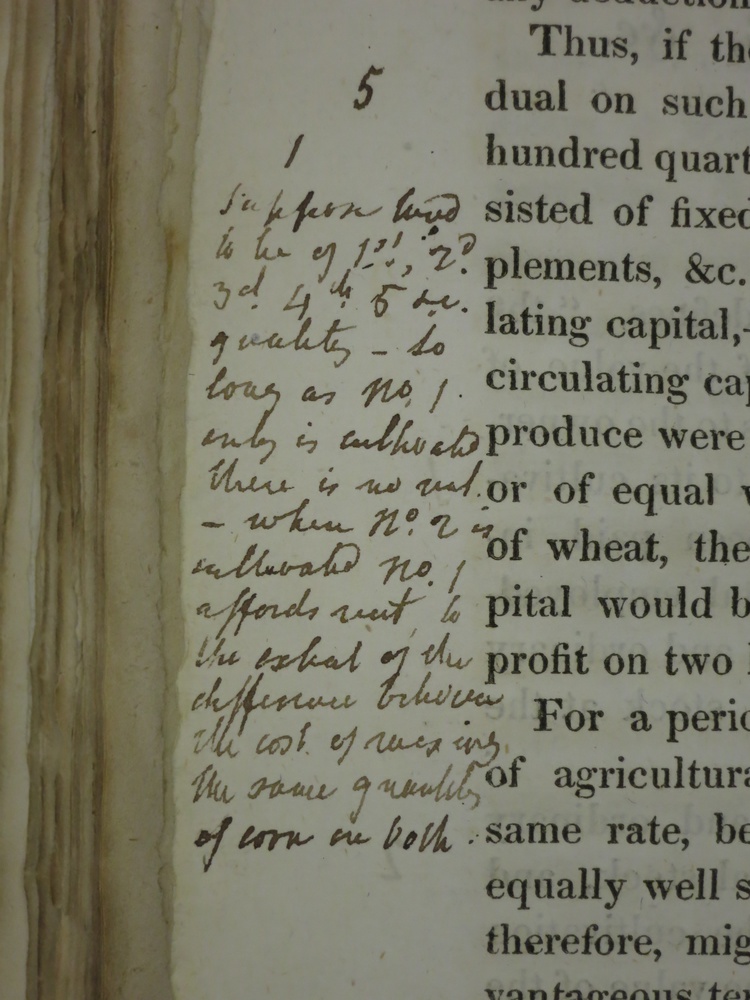 5
1
Suppose land
to be of 1st, 2d
3d 4th 5 &c.
quality - so
long as No. 1
only is cultivated
there is no rent.
- when No. 2 is
cultivated No. 1
affords rent, to
the extent of the
difference between
the cost of raising
the same quantity
of corn on both.
any deduction
Thus, if the
dual on such
hundred quart
sisted of fixed
plements, &c.
lating capital,-
circulating cap
produce were
or of equal v
of wheat, the
pital would b
profit on two
For a peric
of agricultura
same rate, be
equally well s
therefore, mig
vantageous te